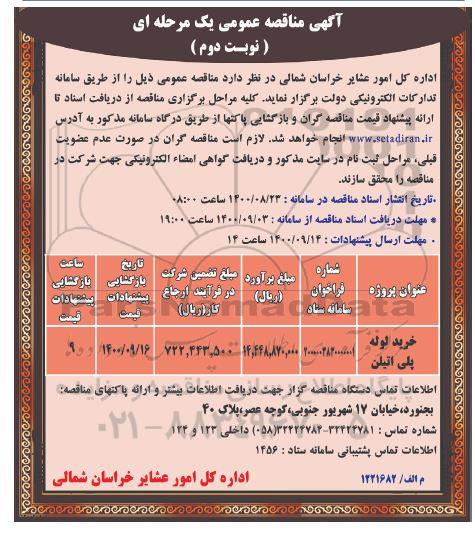 آگهی مناقصه عمومی یک مرحله ای
( نوبت دوم )
اداره کل امور عشایر خراسان شمالی در نظر دارد مناقصه عمومی ذیل را از طریق سامانه
تدارکات الکترونیکی دولت برگزار نماید. کلیه مراحل برگزاری مناقصه از دریافت اسناد تا
ارائه پیشنهاد قیمت مناقصه گران و بازگشایی پاکتها از طریق درگاه سامانه مذکور به آدرس
www.setadiran.ir انجام خواهد شد. لازم است مناقصه گران در صورت عدم عضویت
قبلی، مراحل ثبت نام در سایت مذکور و دریافت گواهی امضاء الکترونیکی جهت شرکت در
مناقصه را محقق سازند.
*تاریخ انتشار اسناد مناقصه در سامانه : ۱۴۰۰/۰۸/۲۳ ساعت ۰۸:۰۰
* مهلت دریافت اسناد مناقصه از سامانه : ۱۴۰۰/۰۹/۰۳ ساعت ۱۹:۰۰
* مهلت ارسال پیشنهادات : ۱۴۰۰/۰۹/۱۴ ساعت ۱۴
عنوان پروژه
شماره فراخوان سامانه ستاد
مبلغ برآورد (ریال)
مبلغ تضمین شرکت در فرآیند ارجاع کار(ریال)
تاریخ بازگشایی پیشنهادات قیمت
ساعت بازگشایی پیشنهادات قیمت
خرید لوله پلی اتیلن
۱۴,۴۴۸,۸۷۰,۰۰۰
۷۲۲,۴۴۳,۵۰۰
۱۴۰۰/۰۹/۱۶
۹
اطلاعات تماس دستگاه مناقصه گزار جهت دریافت اطلاعات بیشتر و ارائه پاکتهای مناقصه:
بجنورد،خیابان ۱۷ شهریور جنوبی،کوچه عصر،پلاک ۴۰
شماره تماس : ۳۲۲۴۴۷۸۱-۳۲۲۴۴۷۸۴(۰۵۸) داخلی ۱۲۳ و ۱۲۴
اطلاعات تماس پشتیبانی سامانه ستاد : ۱۴۵۶
م الف/ ۱۲۲۱۶۸۲
اداره کل امور عشایر خراسان شمالی